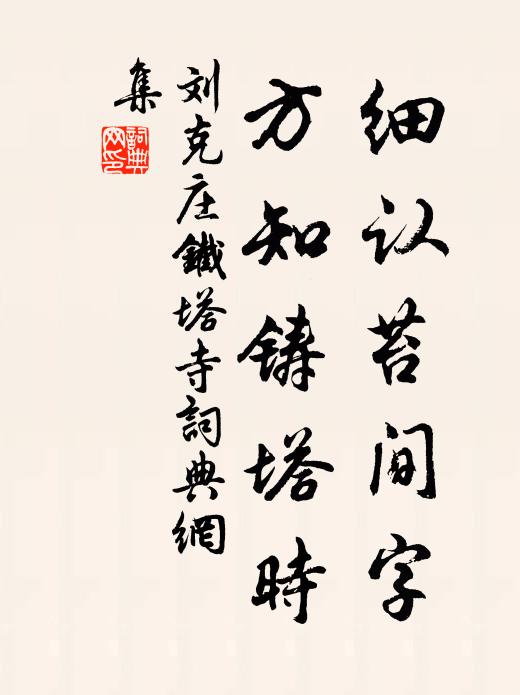 细认苔间字
方知铸塔時
刘克庄鐵塔寺詞典網
集
詞典网印